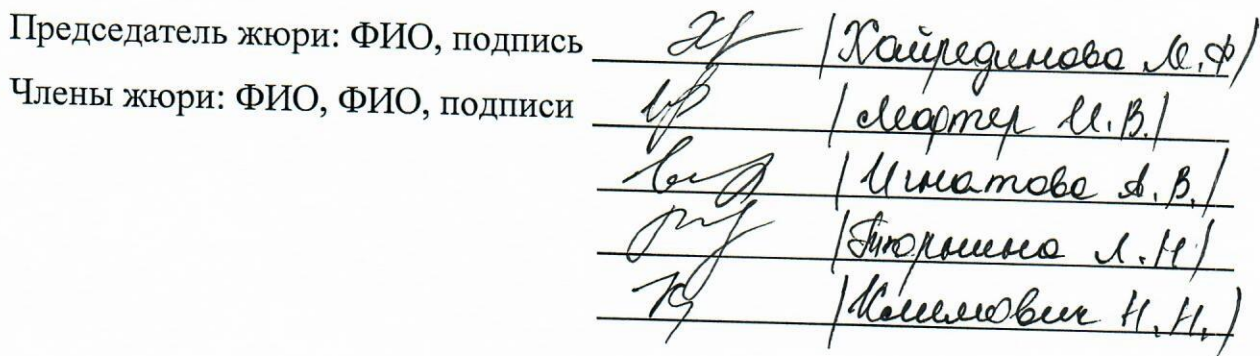 Председатель жюри: ФИО, подпись /Хайрединова М.Ф/
Члены жюри: ФИО, ФИО, подписи /Мартер И.В./
/Игнатова А.В./
/Тюрнина Л.Н/
/Климович Н.Н./